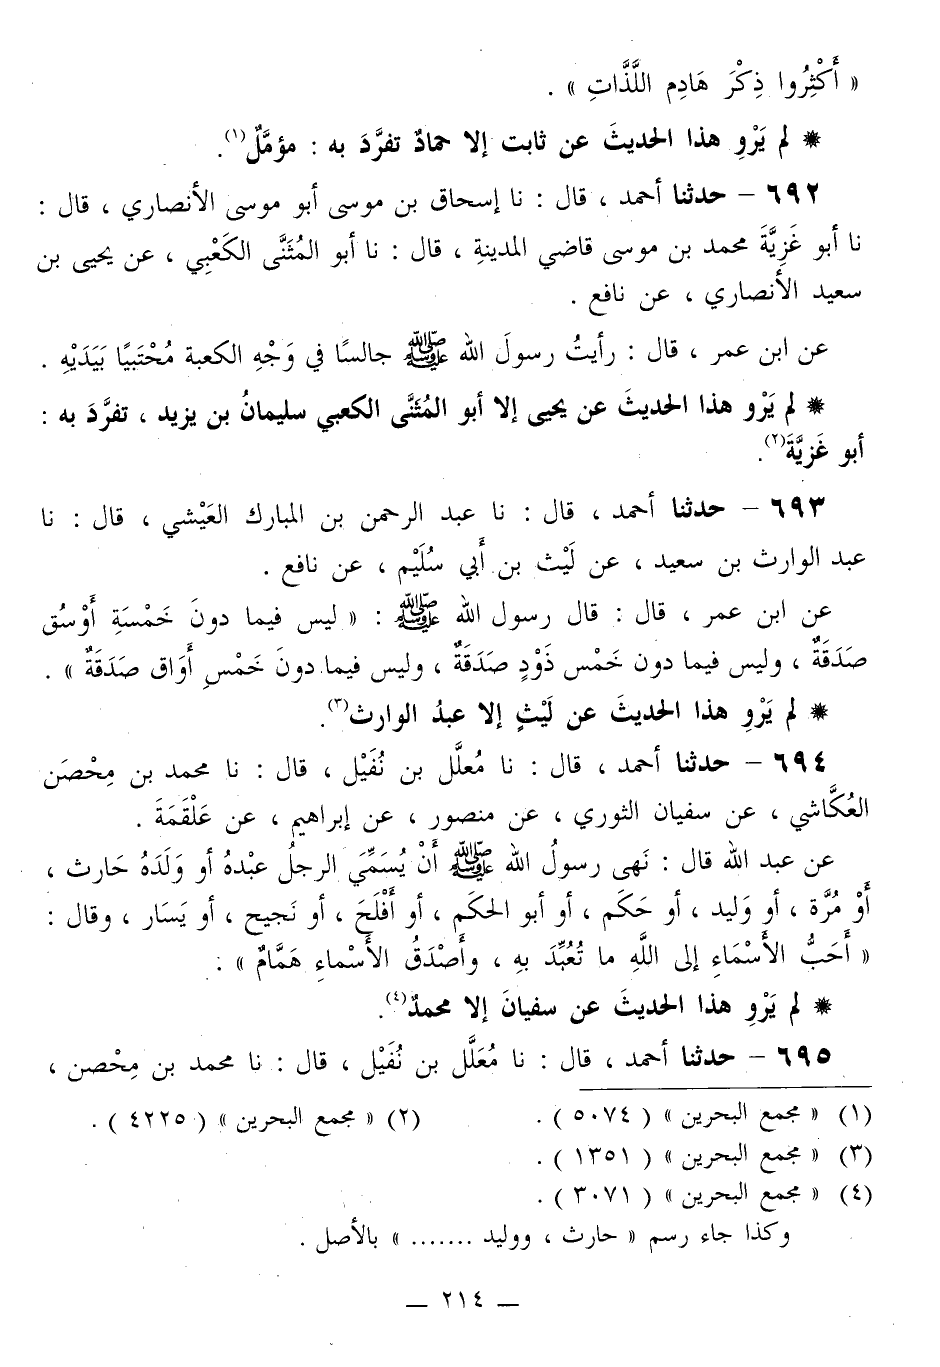 « أَكْثِرُوا ذِكْرَ هَادِمِ اللَّذَّاتِ » .
* لم يَرْوِ هذا الحديثَ عن ثابت إلا حمادٌ تفرَّدَ به : مؤمَّلٌ(١).
٦٩٢ – حدثنا أحمد ، قال : نا إسحاق بن موسى أبو موسى الأنصاري ، قال :
نا أبو غَزِيَّةَ محمد بن موسى قاضي المدينةِ ، قال : نا أبو المُثَنَّى الكَعْبِي ، عن يحيى بن
سعيد الأنصاري ، عن نافع .
عن ابن عمر ، قال : رأيتُ رسولَ الله ﷺ جالسًا في وَجْهِ الكعبة مُحْتَبيًا بَيَدَيْهِ .
* لم يَرْو هذا الحديثَ عن يحيى إلا أبو المُثَنَّى الكعبي سليمانُ بن يزيد ، تفرَّدَ به :
أبو غَزِيَّةَ(٢).
٦٩٣ – حدثنا أحمد ، قال : نا عبد الرحمن بن المبارك العَيْشي ، قال : نا
عبد الوارث بن سعيد ، عن لَيْث بن أَبي سُلَيْم ، عن نافع .
عن ابن عمر ، قال : قال رسول الله ﷺ : « ليس فيما دونَ خَمْسَةِ أَوْسُق
صَدَقَةٌ ، وليس فيما دون خَمْس ذَوْدٍ صَدَقَةٌ ، وليس فيما دونَ خَمْسِ أَوَاق صَدَقَةٌ » .
* لم يَرْوِ هذا الحديثَ عن لَيْثٍ إلا عبدُ الوارث(٣).
٦٩٤ – حدثنا أحمد ، قال : نا مُعلَّل بن نُفَيْل ، قال : نا محمد بن مِحْصَن
العُكَّاشي ، عن سفيان الثوري ، عن منصور ، عن إبراهيم ، عن عَلْقَمَةَ .
عن عبد الله قال : نَهى رسولُ الله ﷺ أَنْ يُسَمِّيَ الرجلُ عبْدهُ أو وَلَدَهُ حَارث ،
أَوْ مُرَّة ، أو وَليد ، أو حَكَم ، أو أبو الحكَم ، أو أَفْلَحَ ، أو نَجيح ، أو يَسَار ، وقال :
« أَحَبُّ الأَسْمَاءِ إلى اللَّهِ ما تُعُبِّدَ بهِ ، وأَصْدَقُ الأَسْماءِ هَمَّامٌ » .
* لم يَرْوِ هذا الحديثَ عن سفيانَ إلا محمدٌ(٤).
٦٩٥ – حدثنا أحمد ، قال : نا مُعَلَّل بن نُفَيْل ، قال : نا محمد بن مِحْصن ،
(١) « مجمع البحرين » ( ٥٠٧٤ ) . (٢) « مجمع البحرين » ( ٤٢٢٥ ) .
(٣) « مجمع البحرين » ( ١٣٥١ ) .
(٤) « مجمع البحرين » ( ٣٠٧١ ) .
وكذا جاء رسم « حارث ، ووليد ....... » بالأصل .
— ٢١٤ —